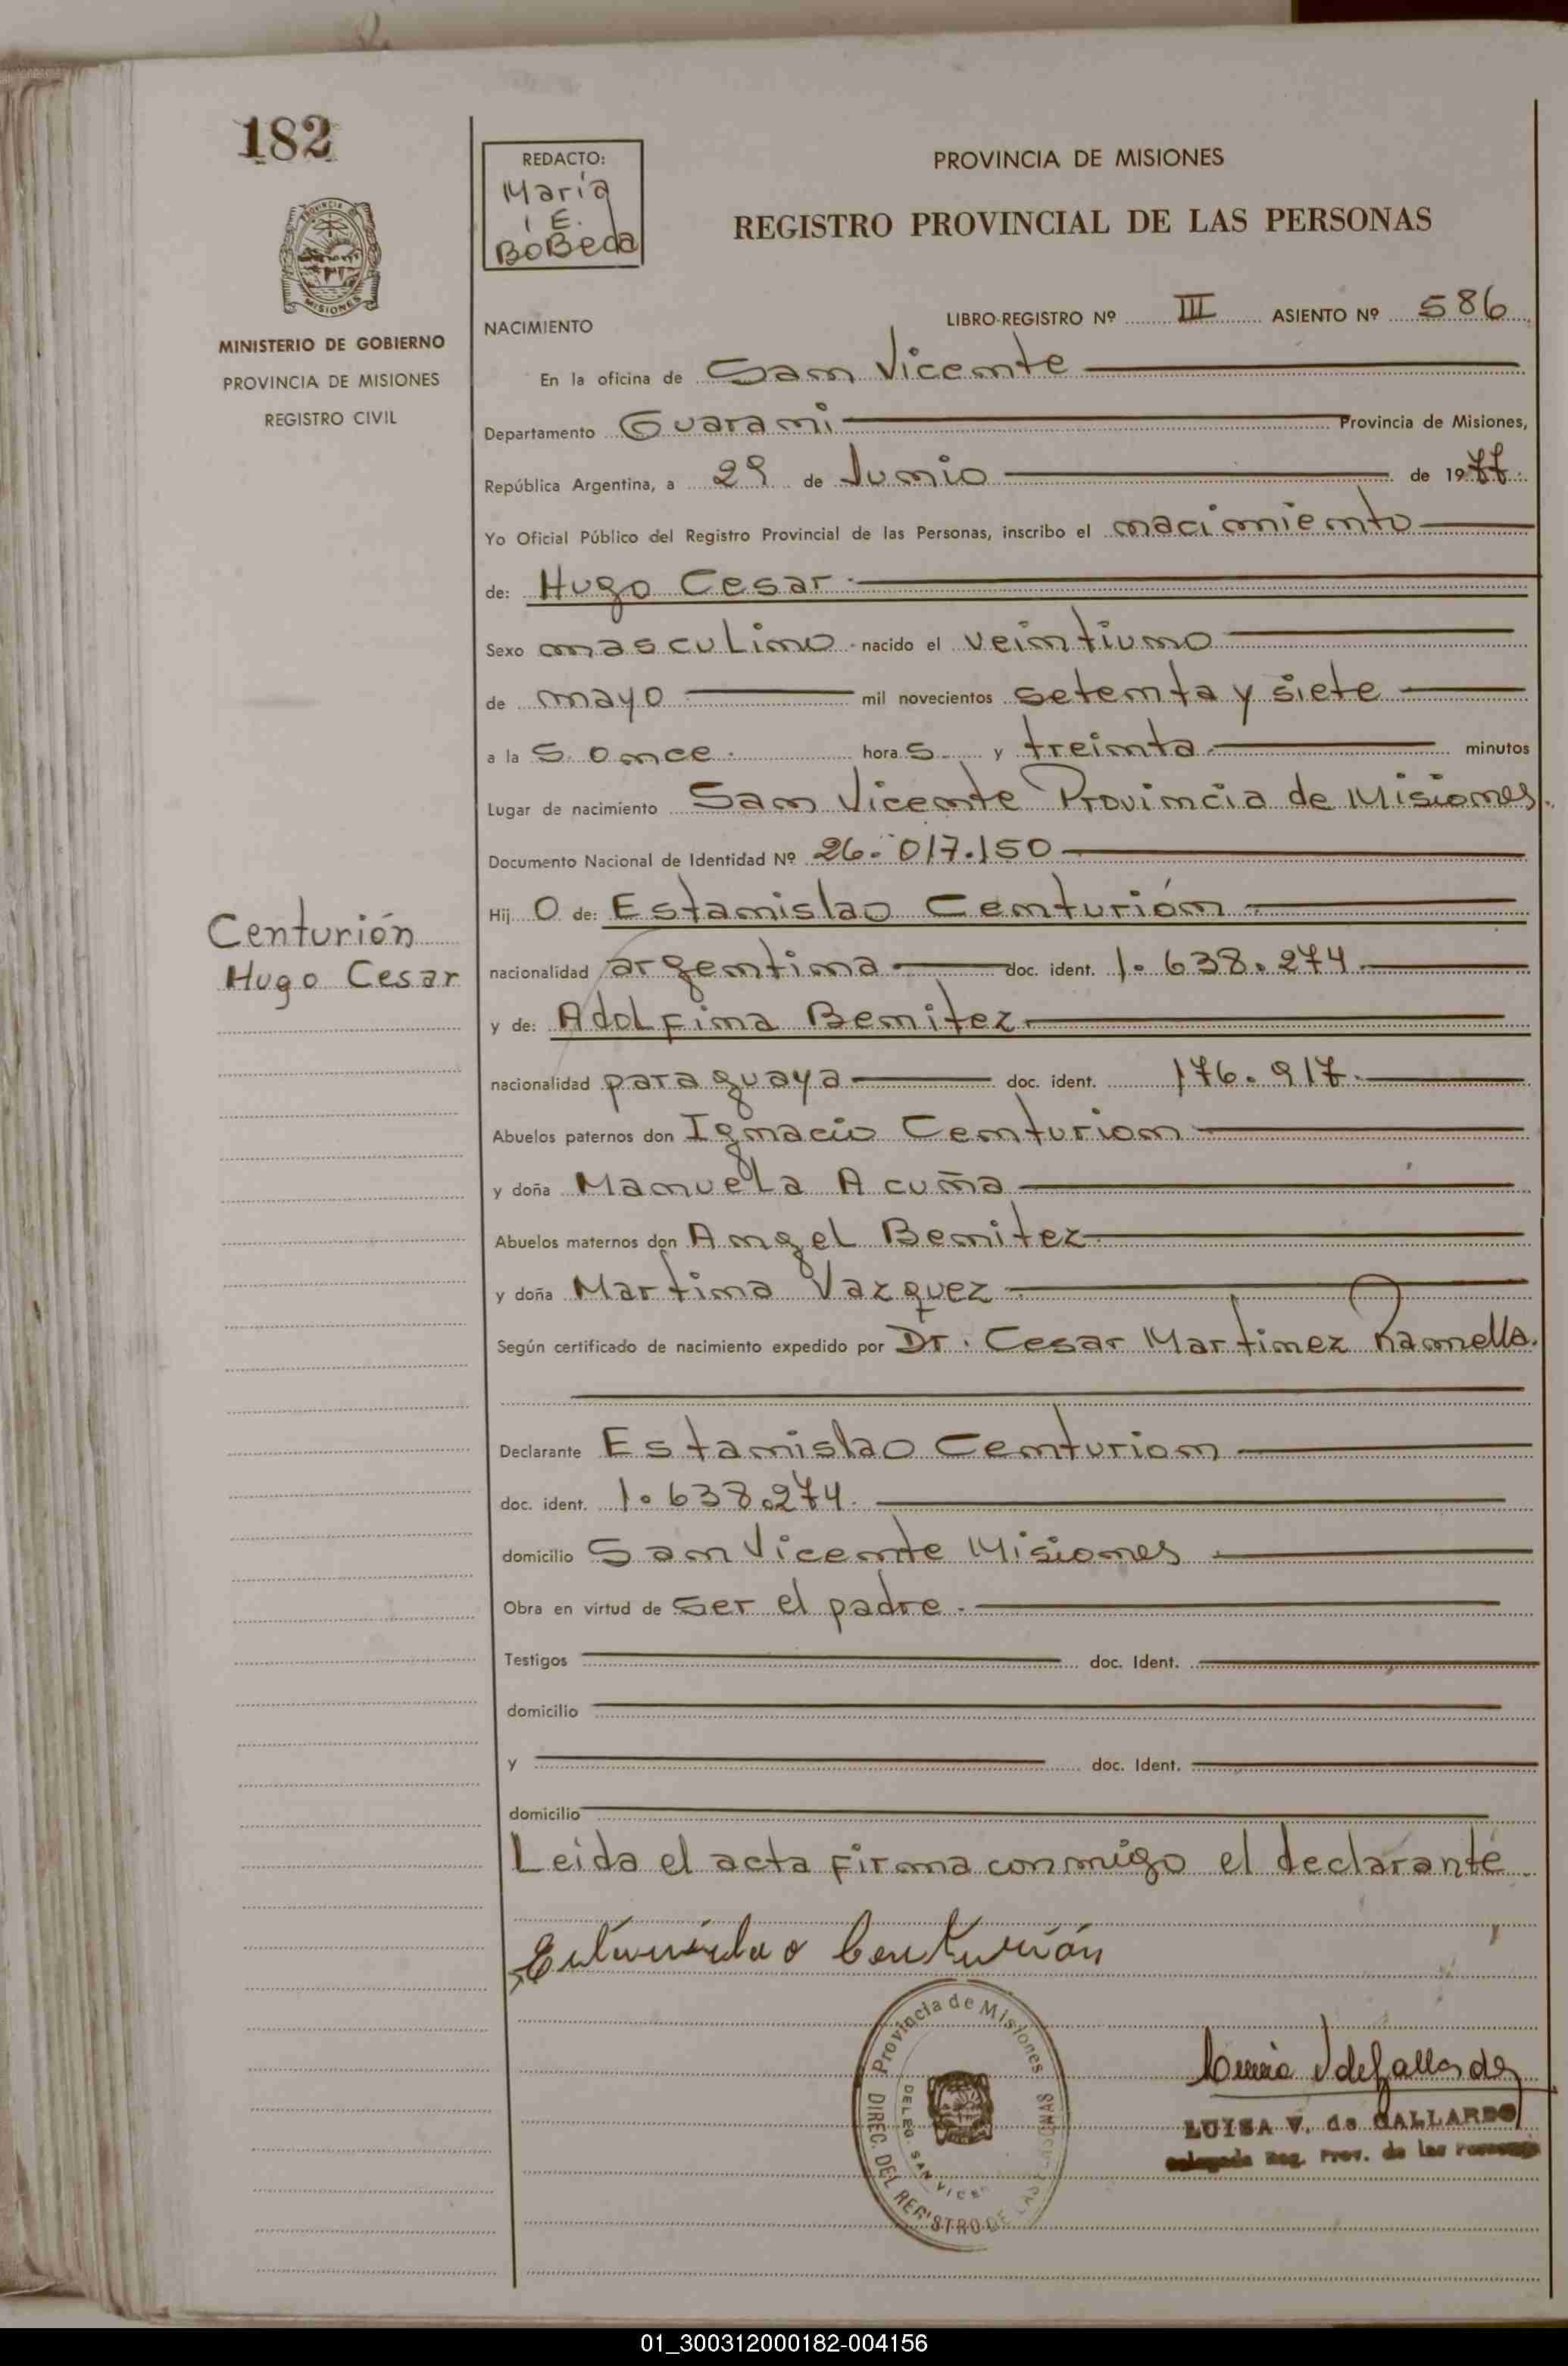 182
PROVINCIA
MISIONES
MINISTERIO DE GOBIERNO
PROVINCIA DE MISIONES
REGISTRO CIVIL
REDACTO:
María
E.
BoBeda
PROVINCIA DE MISIONES
REGISTRO PROVINCIAL DE LAS PERSONAS
NACIMIENTO
LIBRO-REGISTRO Nº III ASIENTO Nº 586
En la oficina de San Vicente
Departamento Guarani Provincia de Misiones,
República Argentina, a 29 de Junio de 1977.
Yo Oficial Público del Registro Provincial de las Personas, inscribo el nacimiento
de: Hugo Cesar
Sexo masculino nacido el veintiuno
de mayo mil novecientos setenta y siete
a la s once hora s y treinta minutos
Lugar de nacimiento San Vicente Provincia de Misiones.
Documento Nacional de Identidad Nº 26.017.150
Hij o de: Estanislao Centurión
Centurión
Hugo Cesar
nacionalidad argentina doc. ident. 1.638.274
y de: Adolfina Benitez
nacionalidad paraguaya doc. ident. 176.917.
Abuelos paternos don Ignacio Centurion
y doña Manuela Acuña
Abuelos maternos don Angel Benitez
y doña Martina Vazquez
Según certificado de nacimiento expedido por Dr. Cesar Martinez Ramella.
Declarante Estanislao Centurion
doc. ident. 1.638.274.
domicilio San Vicente Misiones
Obra en virtud de ser el padre.
Testigos doc. Ident.
domicilio
y doc. Ident.
domicilio
Leida el acta firma conmigo el declarante.
Estanislao Centurión
Provincia de Misiones
DIREC. DEL REGISTRO DE LAS PERSONAS
DELEG. SAN VICE
LUISA V. de GALLARDO
Delegada Reg. Prov. de las Personas
01_300312000182-004156